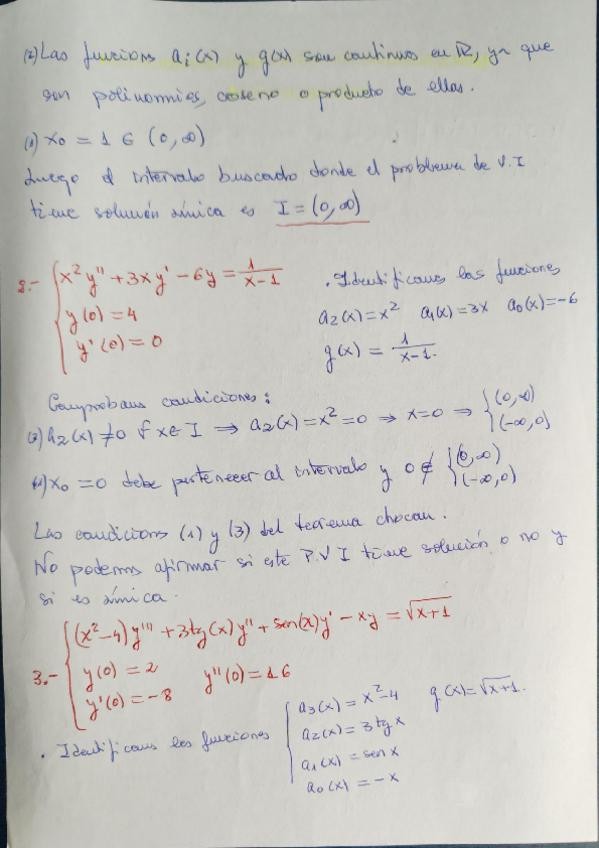 (2) Las funcions ai(x) y g(x) son continuas en ℝ, ya que
son polinomios, coseno o producto de ellas.
(1) x₀ = 1 ∈ (0, ∞)
Luego el intervalo buscado donde el problema de V.I
tiene solución única es I = (0, ∞)
2.- { x²y'' + 3xy' - 6y = 1/(x-1)
y(0) = 4
y'(0) = 0
. Identificams las funciones
a₂(x) = x² a₁(x) = 3x a₀(x) = -6
g(x) = 1/(x-1).
Comprobams condiciones:
(3) a₂(x) ≠ 0 ∀ x ∈ I ⇒ a₂(x) = x² = 0 ⇒ x = 0 ⇒ { (0, ∞)
(-∞, 0)
(1) x₀ = 0 debe pertenecer al intervalo y 0 ∉ { (0, ∞)
(-∞, 0)
Las condicions (1) y (3) del teorema chocan.
No podems afirmar si este P.V I tiene solución o no y
si es única.
3.- { (x²-4) y''' + 3tg(x) y'' + sen(x) y' - xy = √x+1
y(0) = 2 y''(0) = 16
y'(0) = -8
. Identificams las funciones { a₃(x) = x²-4 g(x) = √x+1.
a₂(x) = 3 tg x
a₁(x) = sen x
a₀(x) = -x